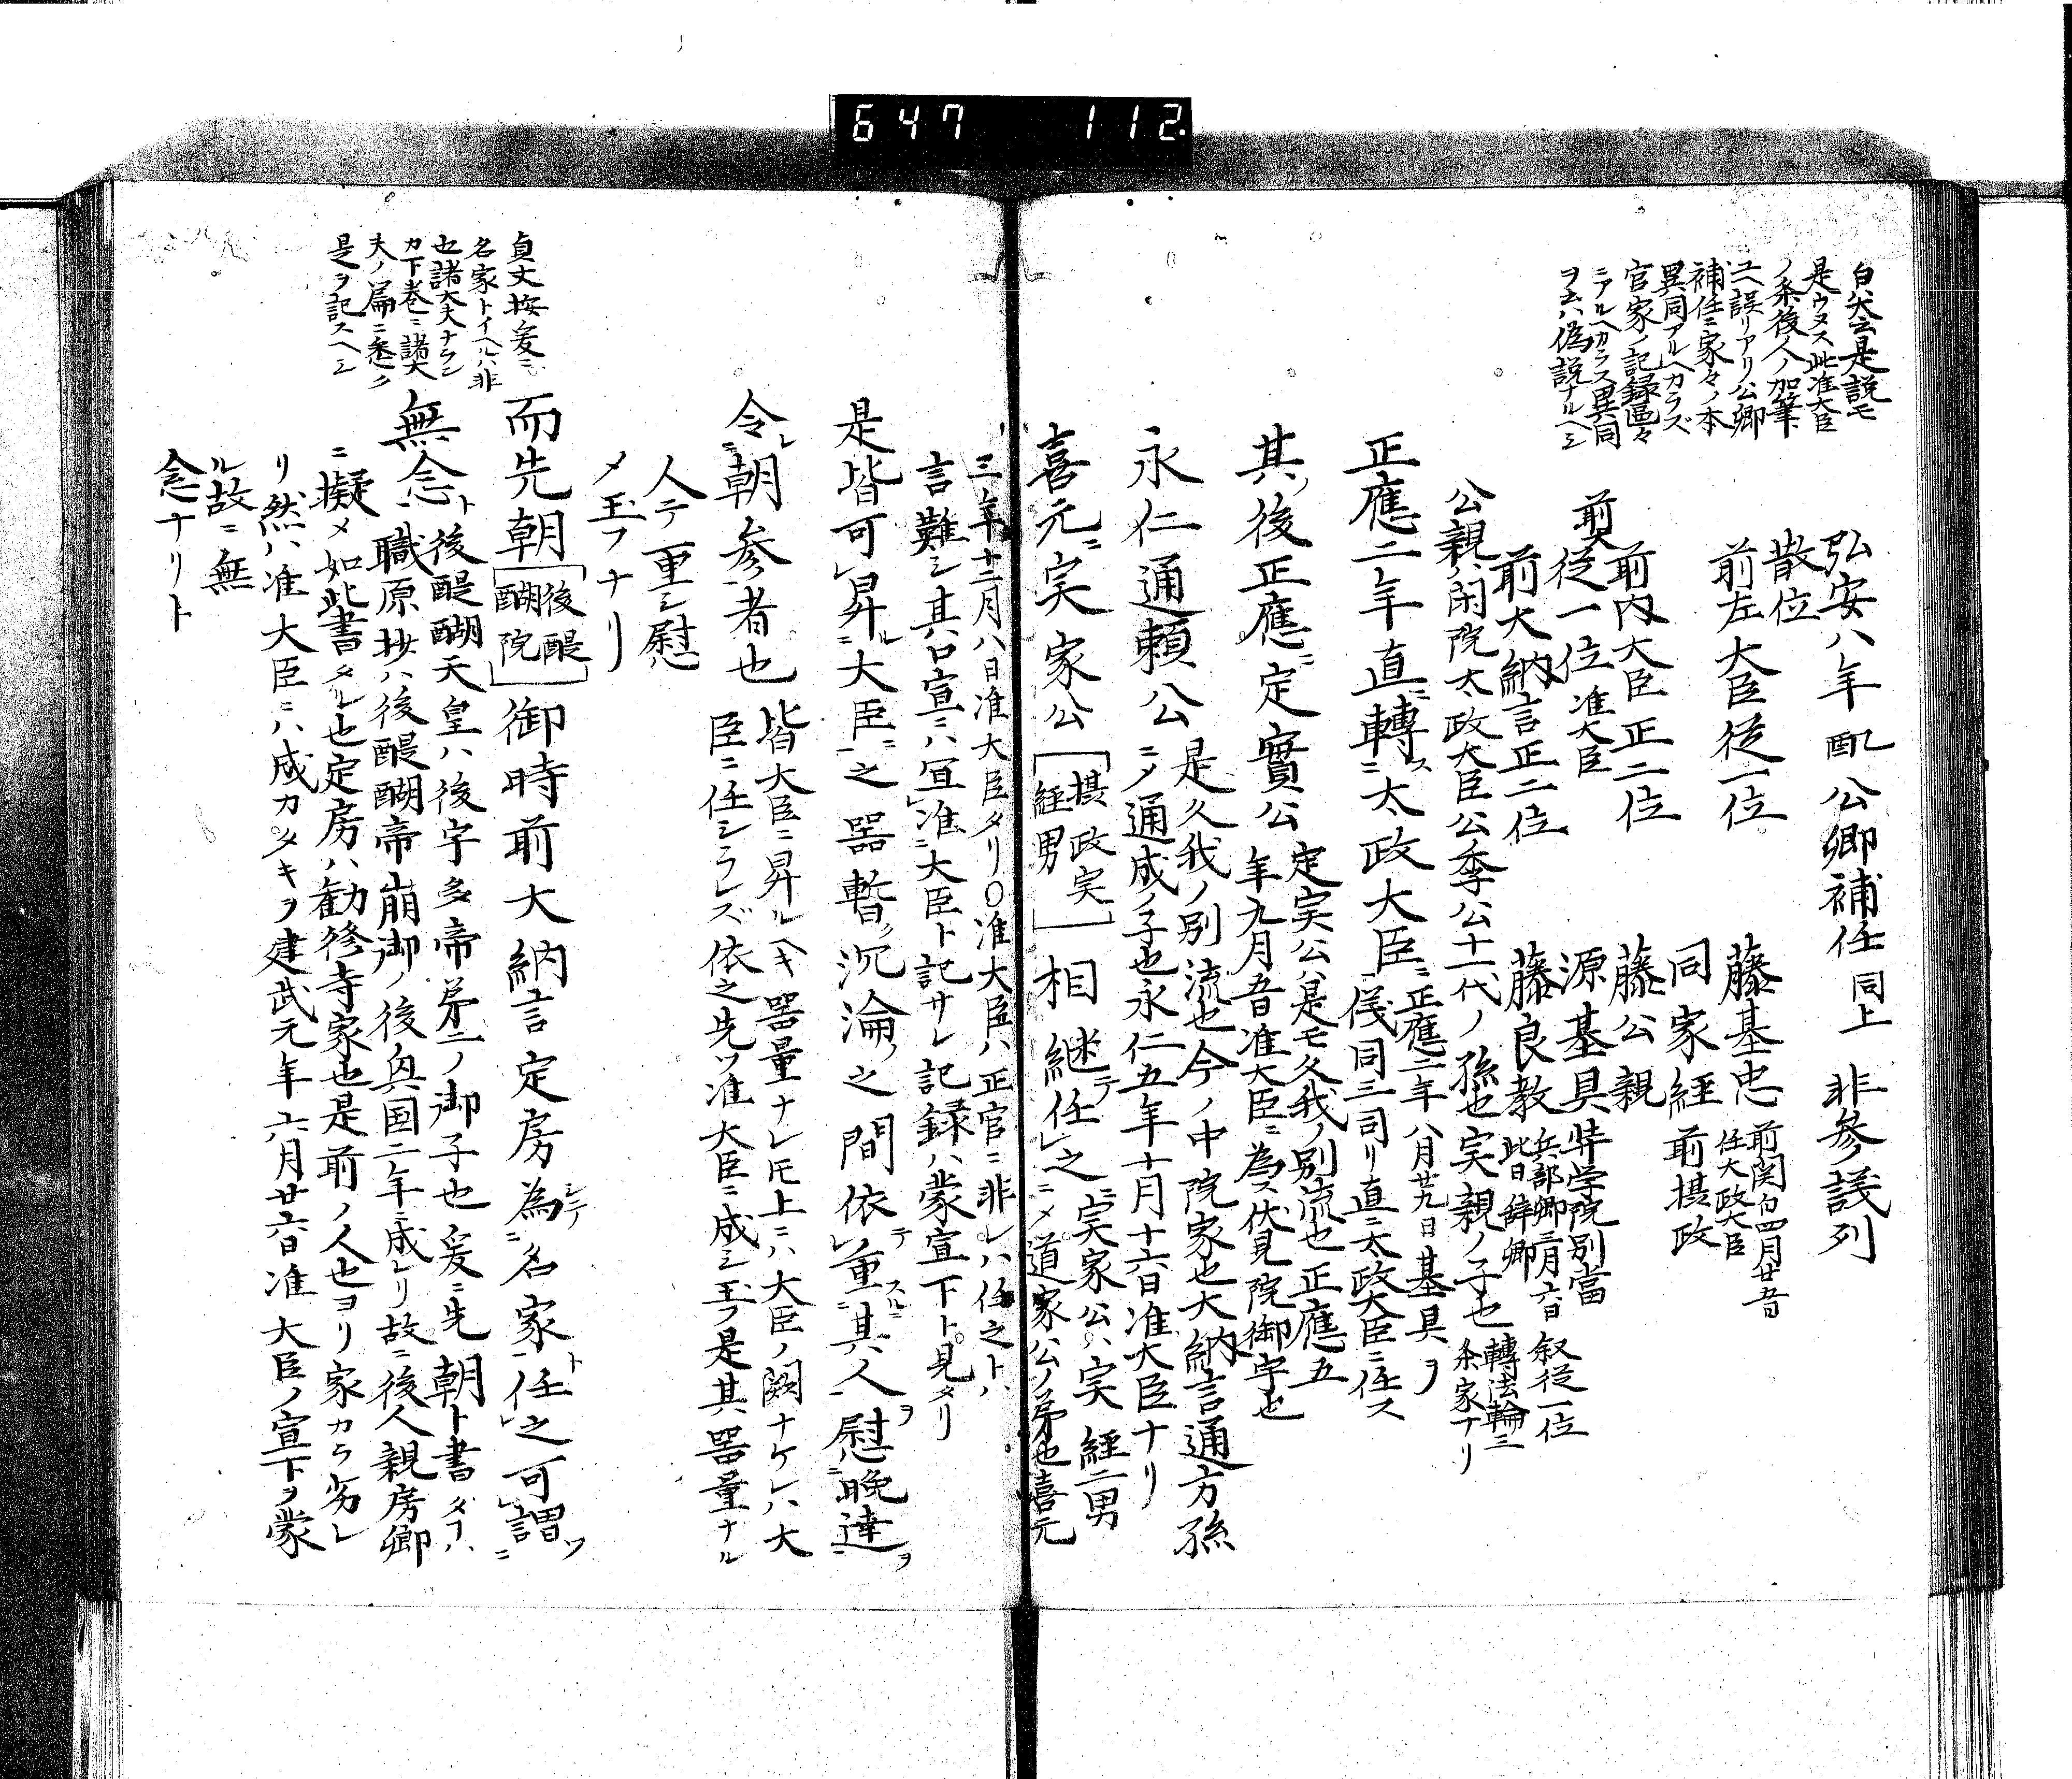 647 112
白尖云是説モ
是ウヌス此准大臣
ノ条後人ノ加筆
ユヘ誤リアリ公卿
補任ニ家々ノ本
異同アルヘカラズ
官家ノ記録區々
ニアルヘカラス異同
ヲ云ハ偽説ナルヘシ
弘安八年 公卿補任 同上 非參議列
散位
前左大臣従一位 藤基忠 前関白四月廿五日任太政大臣
同家経 前摂政
前内大臣正二位 藤公親
従一位 准大臣 源基具 弉学院別當
前大納言正二位 藤良教 兵部卿三月六日叙従一位此日辞卿
公親ハ閑院太政大臣公季公十一代ノ孫也実親ノ子也 轉法輪三条家ナリ
正應二年直轉ス太政大臣ニ 正應二年八月廿九日基具ヲ儀同三司ヨリ直ニ太政大臣ニ任ス
其ノ後正應ニ定實公 定実公ハ是モ久我ノ別流也正應五年九月五日准大臣ニ為ス伏見院御宇也
永仁通頼公 是久我ノ別流也今ノ中院家也大納言通方孫ニメ通成ノ子也永仁五年十月十六日准大臣ナリ
嘉元ニ実家公 摂政実経男 相継テ任之 実家公ハ実経二男ニメ道家公ノ弟也嘉元
三年十二月八日准大臣タリ○准大臣ハ正官ニ非レハ任之トハ
言難シ其口宣ニハ宜准大臣ト記サレ記録ハ蒙宣下ト見タリ
是皆可昇ル大臣ニ之器暫ク沉淪ノ之間依テ重スルニ其人ヲ慰晩達ヲ
令朝參者也 皆大臣ニ昇ルヘキ器量ナレ𪜈上ニハ大臣ノ闕ナケレハ大
臣ニ任シラレズ依之先ツ准大臣ニ成シ玉フ是其器量ナル
人テ重シ慰
メ玉フナリ
貞丈按爰ニ
名家トイヘルハ非
也諸大夫ナラン
カ下巻ニ諸大
夫ノ篇ニ委ク
是ヲ記スヘシ
而先朝 後醍醐院 御時前大納言定房為シテ名家ト任之可謂ツ
無念ト 後醍醐天皇ハ後宇多帝第二ノ御子也爰ニ先朝ト書タルハ
職原抄ハ後醍醐帝崩御ノ後興国二年ニ成レリ故ニ後人親房卿
ニ擬メ如此書タル也定房ハ勧修寺家也是前ノ人也ヨリ家カラ劣レ
リ然ハ准大臣ニハ成カタキヲ建武元年六月廿六日准大臣ノ宣下ヲ蒙
ル故ニ無
念ナリト